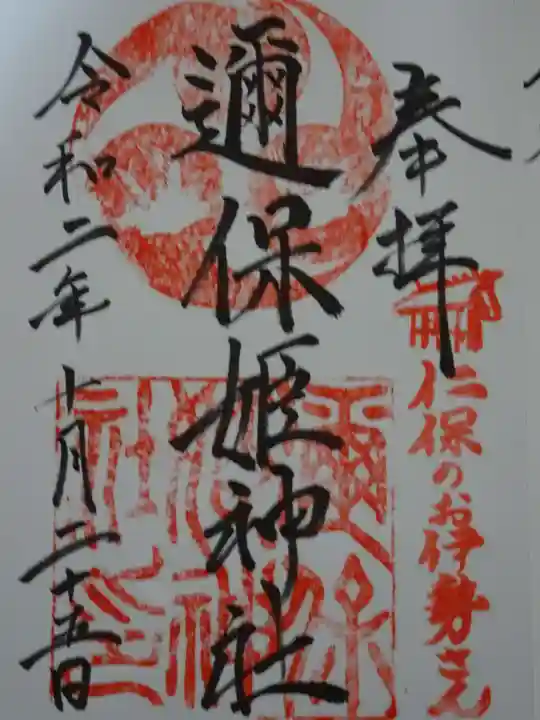 奉拝
仁保のお伊勢さん
邇保姫神社
令和二年十月二十五日